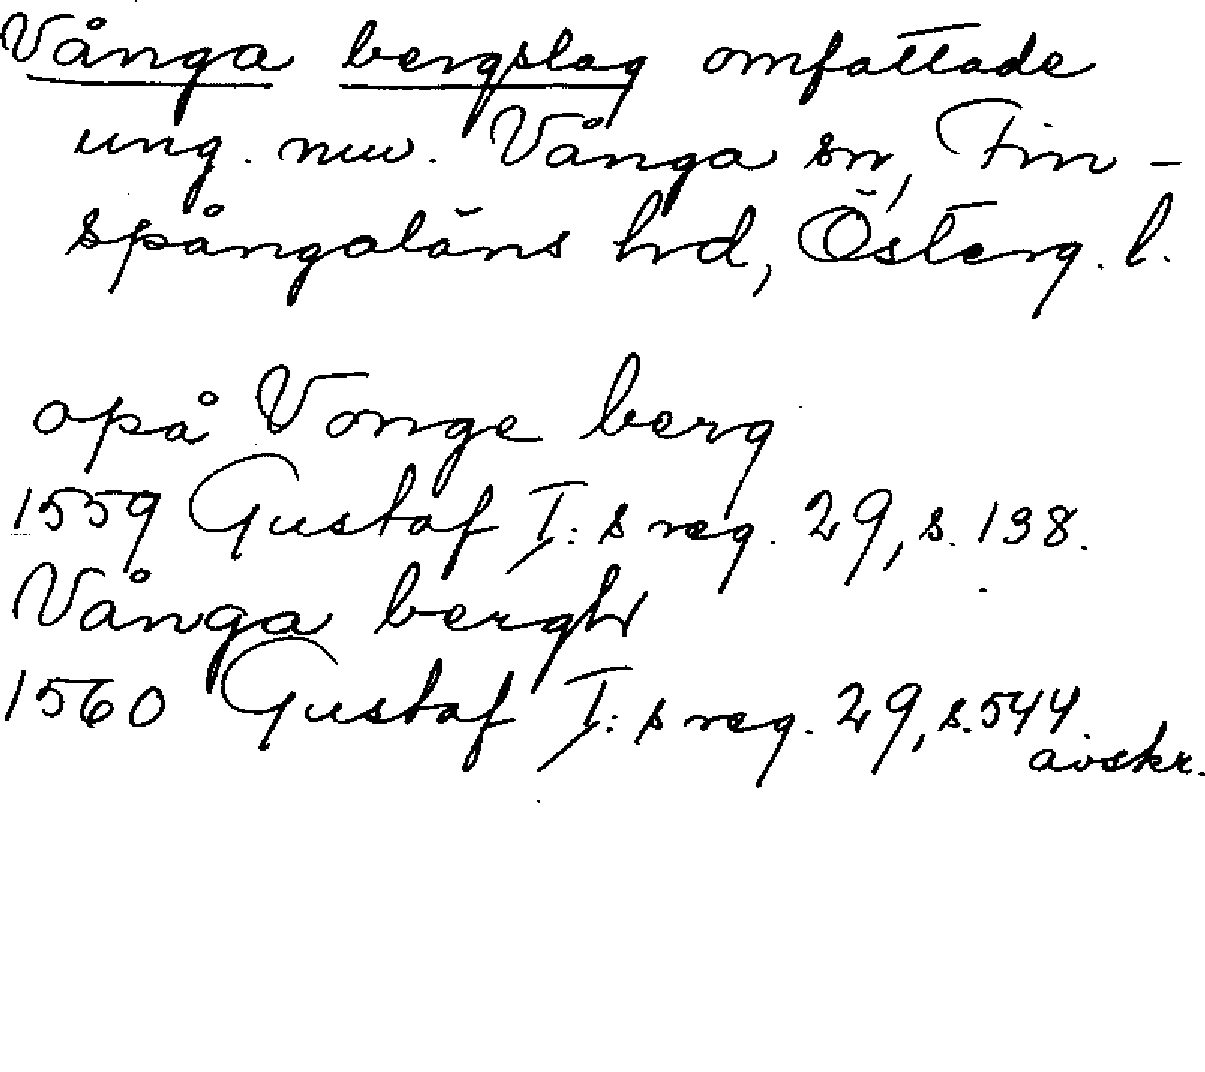 Vånga bergslag omfattade
ung. nuv. Vånga sn, Fin-
spångaläns hd, Österg. l.
opå Vonge berg
1559 Gustaf I:s reg. 29, s. 138.
Vånga bergh
1560 Gustaf I:s reg. 29, s. 544.
avskr.